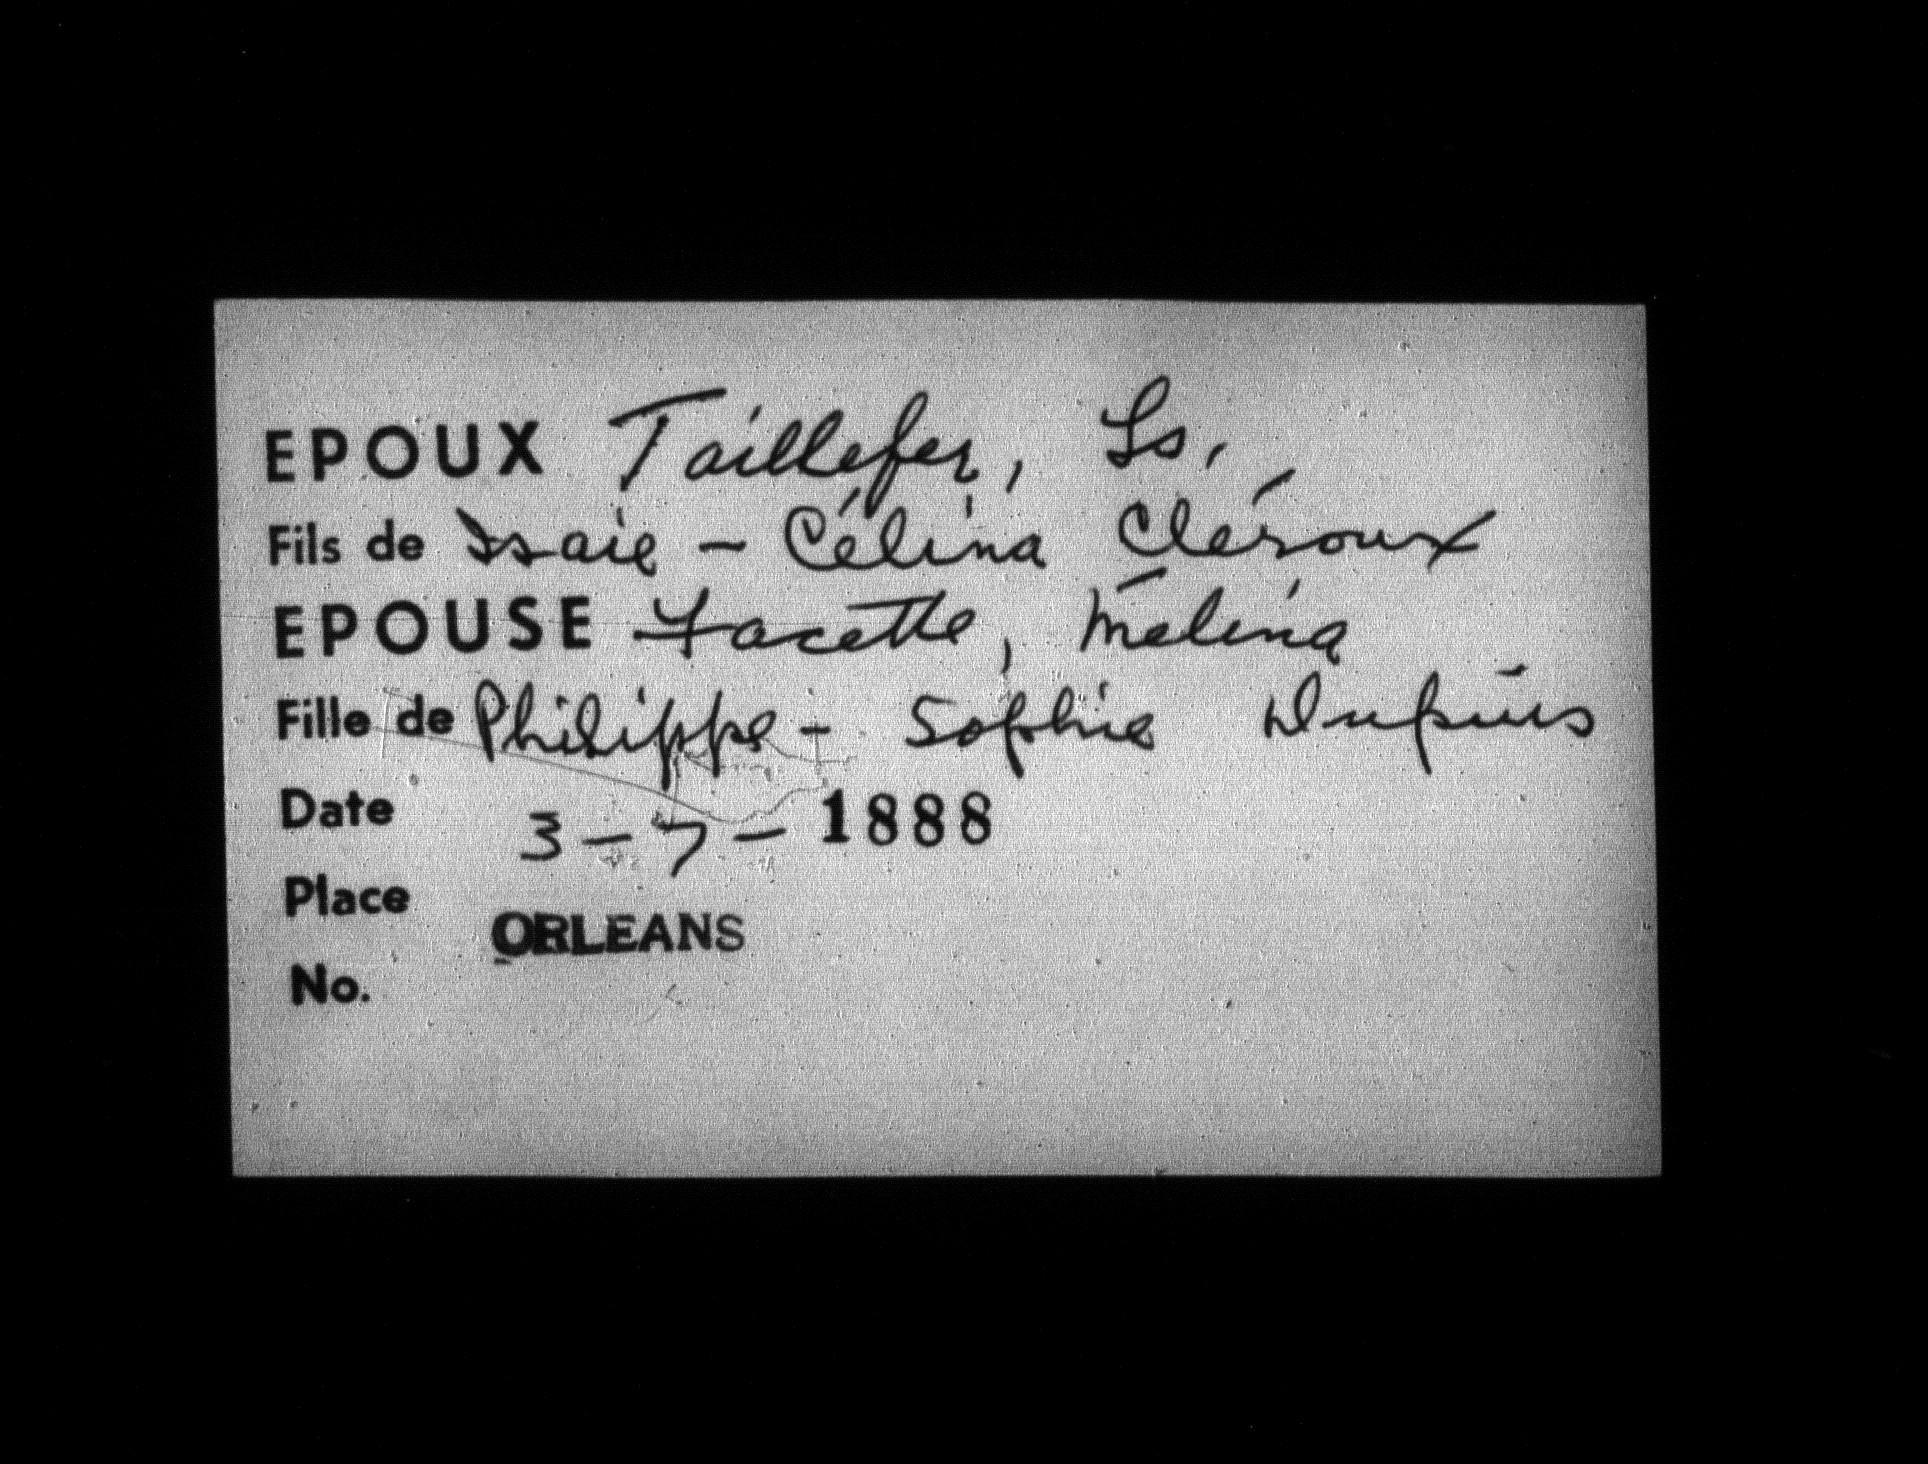 EPOUX Taillefer, Ls,
Fils de Isaie - Célina Cléroux
EPOUSE Facette, Mélina
Fille de Philippe - Sophie Dupuis
Date 3-7-1888
Place ORLEANS
No.